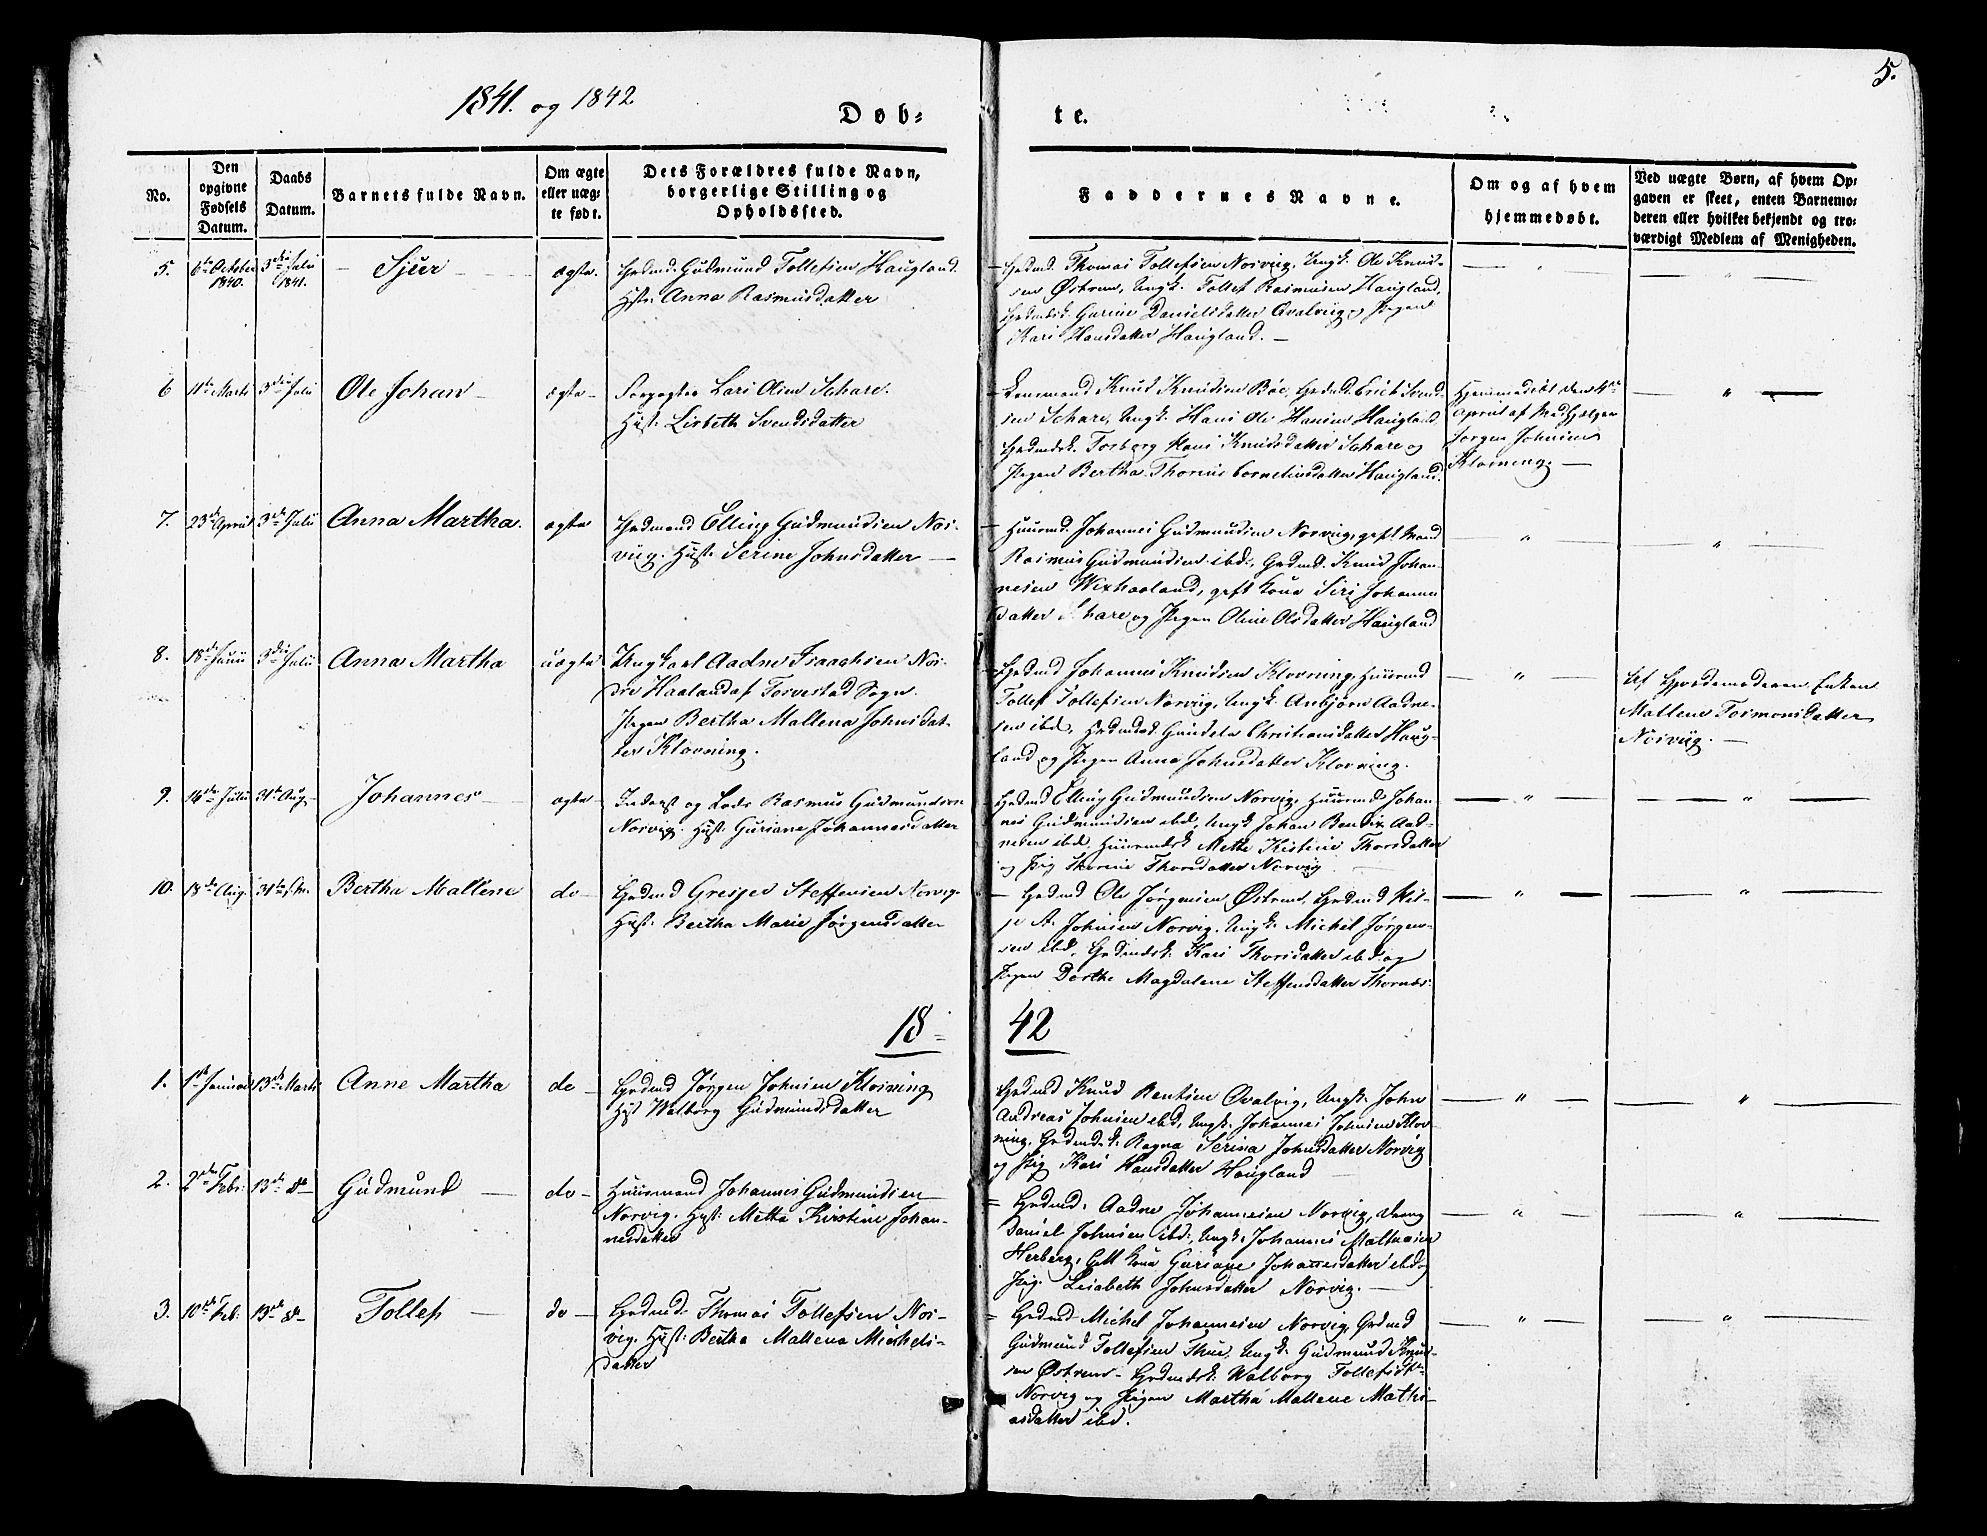 1841. og 1842
Døb-
te.
5.
No.
Den opgivne Fødsels Datum.
Daabs Datum.
Barnets fulde Navn.
Om ægte eller uægte født.
Dets Forældres fulde Navn, borgerlige Stilling og Opholdssted.
Faddernes Navne.
Om og af hvem hjemmedøbt.
Ved uægte Børn, af hvem Opgaven er skeet, enten Barnemoderen eller hvilket bekjendt og troværdigt Medlem af Menigheden.
5. 6te October 1840. 3die Julii 1841. Sjur ægte
Grdmd. Gudmund Tollefsen Haugland.
Hstr: Anna Rasmusdatter
Grdmd. Thomas Tollefsen Norviig, Ungk. Ole Knud-
sen Østrem, Ungk. Tollef Rasmusen Haugland,
Grdmdsk. Gurine Danielsdatter Qvalviig og Pigen
Kari Hansdatter Haugland.
6 11te Marts 3die Julii Ole Johan ægte
Lars Olsen Schare.
Hust. Lisbeth Svendsdatter
Lensmand Knud Knudsen Bøe, Grdmd. Erich Svend-
sen Schare, Ungk. Hans Ole Hansen Haugland
Grdmdsk. Torborg Knudsdatter Schare og
Pigen Bertha Thorine Corneliusdatter Haugland.
Hjemmedøbt den 4de
April af Medhjelper
Jørgen Johnsen
Klovning.
7. 23de April 3die Julii Anna Martha. ægte
Grdmand Elling Gudmundsen Nor-
viig. Hust. Serine Johnsdatter
Huusmd. Johannes Gudmundsen Norviig, gift Mand
Rasmus Gudmundsen ibd., Grdmd. Knud Johan-
nesen Wixhaaland, gift Kone Siri Johannes
datter Schare og Pigen Oline Olsdatter Haugland
8. 18de Junii 3die Julii Anna Martha uægte
Ungkarl Aadne Isaachsen Nor-
dre Haaland af Torvestad Sogn.
Pigen Bertha Mallena Johnsdat-
ter Klovning.
Grdmd Johannes Knudsen Klovning, Huusmd
Tollef Tollefsen Norviig, Ungk. Anbjørn Aadne-
sen ibd, Grdmdsk Gundela Christiansdatter Haug-
land og Pigen Anna Johnsdatter Klovning.
Af Gjordemoderen Enken
Mallene Tormonsdatter
Norviig.
9. 14de Julii 31te Aug. Johannes ægte
Inderst og Lods Rasmus Gudmundsen
Norvig. Hust. Guriane Johannesdatter
Grdmd Elling Gudmundsen Norvig, Huusmd Johan-
nes Gudmundsen ibd, Ungk Johan Bendix Aad-
nesen ibd, Huusmdsk Mette Kistine Thorsdatter
og Pig Thorine Thorsdatter Norvig
10. 18de Aug. 31te do. Bertha Mallene do
Grdmd Greiger Steffensen Norvig.
Hust: Bertha Marie Jørgensdatter
Grdmd Ole Jørgensen Østrem, Grdmd Hel-
je A. Johnsen Norvig, Ungk. Michel Jørgen-
sen ibd, Grdmdsk. Kari Thorsdatter ibd og
Pigen Dorthe Magdalene Steffensdatter Thornæs.
18-
42
1. 1ste Januar 13de Marts Anne Martha do
Grdmd Jørgen Johnsen Klovning
Hust Walborg Gudmundsdatter
Grdmd Knud Qvalvig, Ungk. John
Andreas Johnsen ibd, Ungk. Johannes Johnsen Klov-
ning, Grdmdsk. Ragna Serina Johnsdatter Norvig
og Pig Kari Hansdatter Haugland
2. 2den Febr: 13de do Gudmund do
Huusmand Johannes Gudmundsen
Norvig. Hust: Metta Kirstine Johan-
nesdatter
Grdmd. Aadne Johannesen Norvig, Dreng
Daniel Johnsen ibd, Ungk. Johannes Mathiasen
Herberg, Gift Kone Guriane Johannesdatter ibd og
Pig. Lisabeth Johnsdatter Norvig.
3. 10de Feb: 13de do Tollef do
Grdmd. Thomas Tollefsen Nor-
vig. Hust: Bertha Mallena Michels-
datter
Grdmd Michel Johannesen Norvig, Grdmd
Gudmund Tollefsen Thue, Ungk. Gudmund Knud-
sen Østrem, Grdmdsk. Walborg Tollefsdtr
Norvig og Pigen Martha Mallene Mathi-
asdatter ibd.